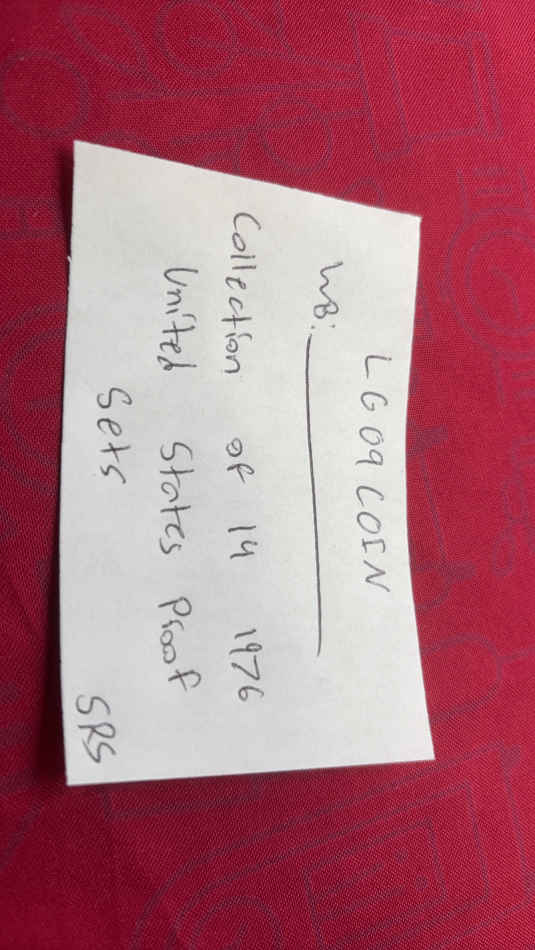 LG09COIN
WB: ____________
Collection of 14 1976
United States Proof
Sets
SRS